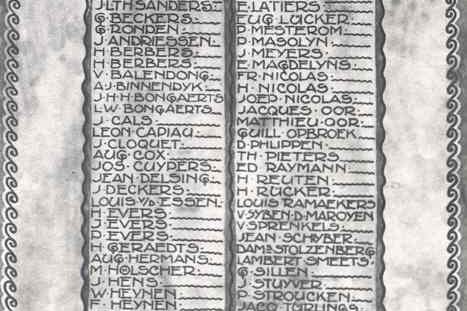 J·LTH·SANDERS·
G·BECKERS·
G·RONDEN·
J·ANDRIESSEN·
H·BERBERS·
H·BERBERS·
V·BALENDONG·
A·J·BINNENDYK·
J·H·H·BONGAERTS
L·W·BONGAERTS
J·CALS·
LEON·CAPIAU·
J·CLOQUET·
AUG·COX·
JOS·CUYPERS·
JEAN·DELSING·
J·DECKERS·
LOUIS·V/D·ESSEN·
H·EVERS·
J·EVERS·
P·EVERS·
H·GERAEDTS·
AUG·HERMANS·
M·HOLSCHER·
J·HENS·
W·HEYNEN·
F·HEYNEN·
E·LATIERS·
EUG·LÜCKER·
P·MESTEROM·
P·MASOLYN·
J·MEYERS·
E·MAGDELYNS·
FR·NICOLAS·
H·NICOLAS·
JOEP·NICOLAS·
JACQUES·OOR·
MATTHIEU·OOR·
GUILL·OPBROEK·
D·PHLIPPEN·
TH·PIETERS·
ED·RAYMANN·
H·REUTEN·
H·RÜCKER·
LOUIS·RAMAEKERS
V·SYBEN·D·MAROYEN
V·SPRENKELS·
JEAN·SCHYBER·
DAM·STOLZENBERG
LAMBERT·SMEETS·
G·SILLEN·
J·STUYVER·
P·STROUCKEN·
JACQ·TÜRLINGS·